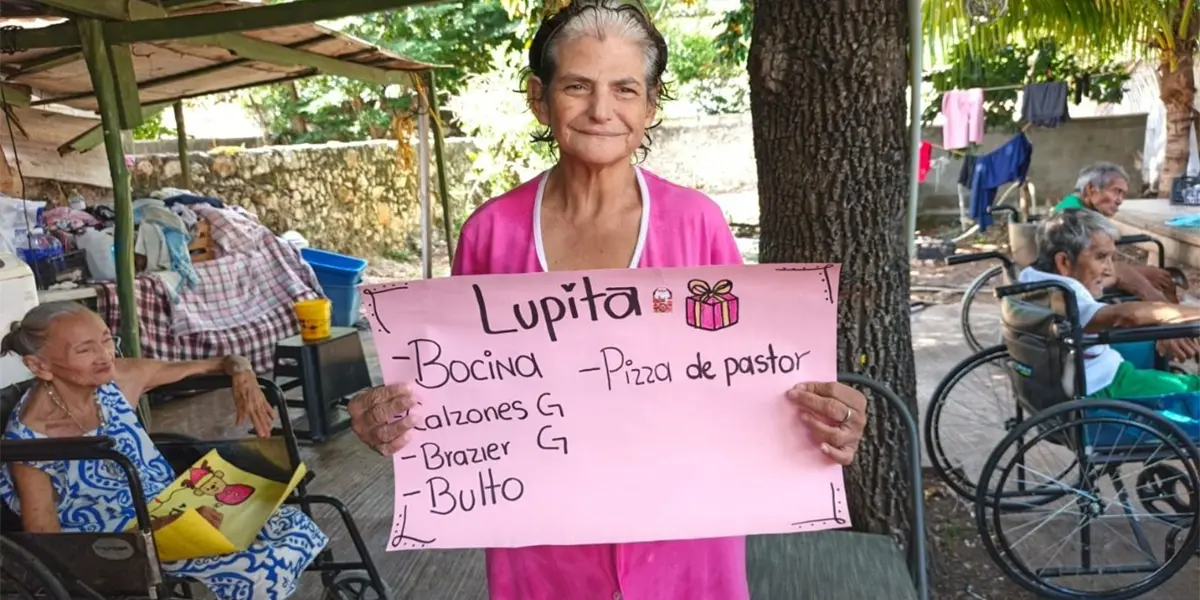 Lupita
-Bocina
-Calzones G
-Brazier G
-Bulto
-Pizza de pastor